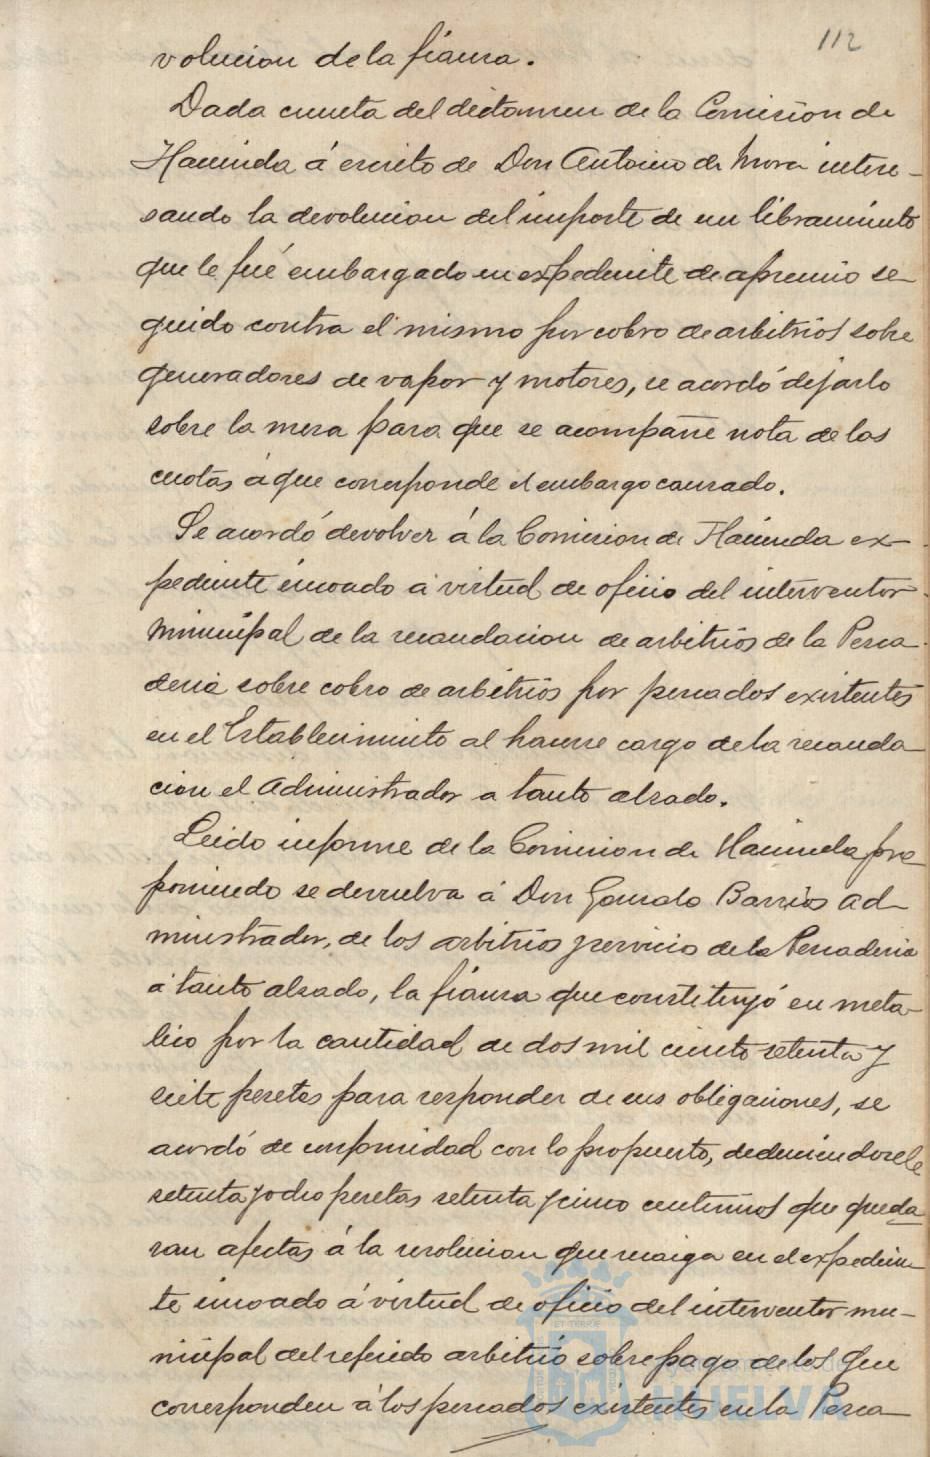 112
volucion de la fianza.
Dada cuenta del dictamen de la Comision de
Hacienda á escrito de Don Antonio de Mora intere-
sando la devolucion del importe de un libramiento
que le fué embargado en expediente de apremio se-
guido contra el mismo por cobro de arbitrios sobre
generadores de vapor y motores, se acordó dejarlo
sobre la mesa para que se acompañe nota de las
cuotas á que corresponde el embargo causado.
Se acordó devolver á la Comision de Hacienda ex-
pediente incoado á virtud de oficio del interventor
municipal de la recaudacion de arbitrios de la Pesca-
deria sobre cobro de arbitrios por pescados existentes
en el Establecimiento al hacerse cargo de la recauda-
cion el Administrador a tanto alzado.
Leido informe de la Comision de Hacienda pro-
poniendo se devuelva á Don Gonzalo Barrios Ad-
ministrador, de los arbitrios y servicio de la Pescaderia
á tanto alzado, la fianza que constituyó en meta-
lico por la cantidad de dos mil ciento setenta y
siete pesetas para responder de sus obligaciones, se
acordó de conformidad con lo propuesto, deduciendosele
setenta y ocho pesetas setenta y cinco centimos que queda-
ran afectas á la resolucion que recaiga en el expedien-
te incoado á virtud de oficio del interventor mu-
nicipal del referido arbitrio sobre pago de los que
corresponden á los pescados existentes en la Pesca-
Ayuntamiento de
HUELVA